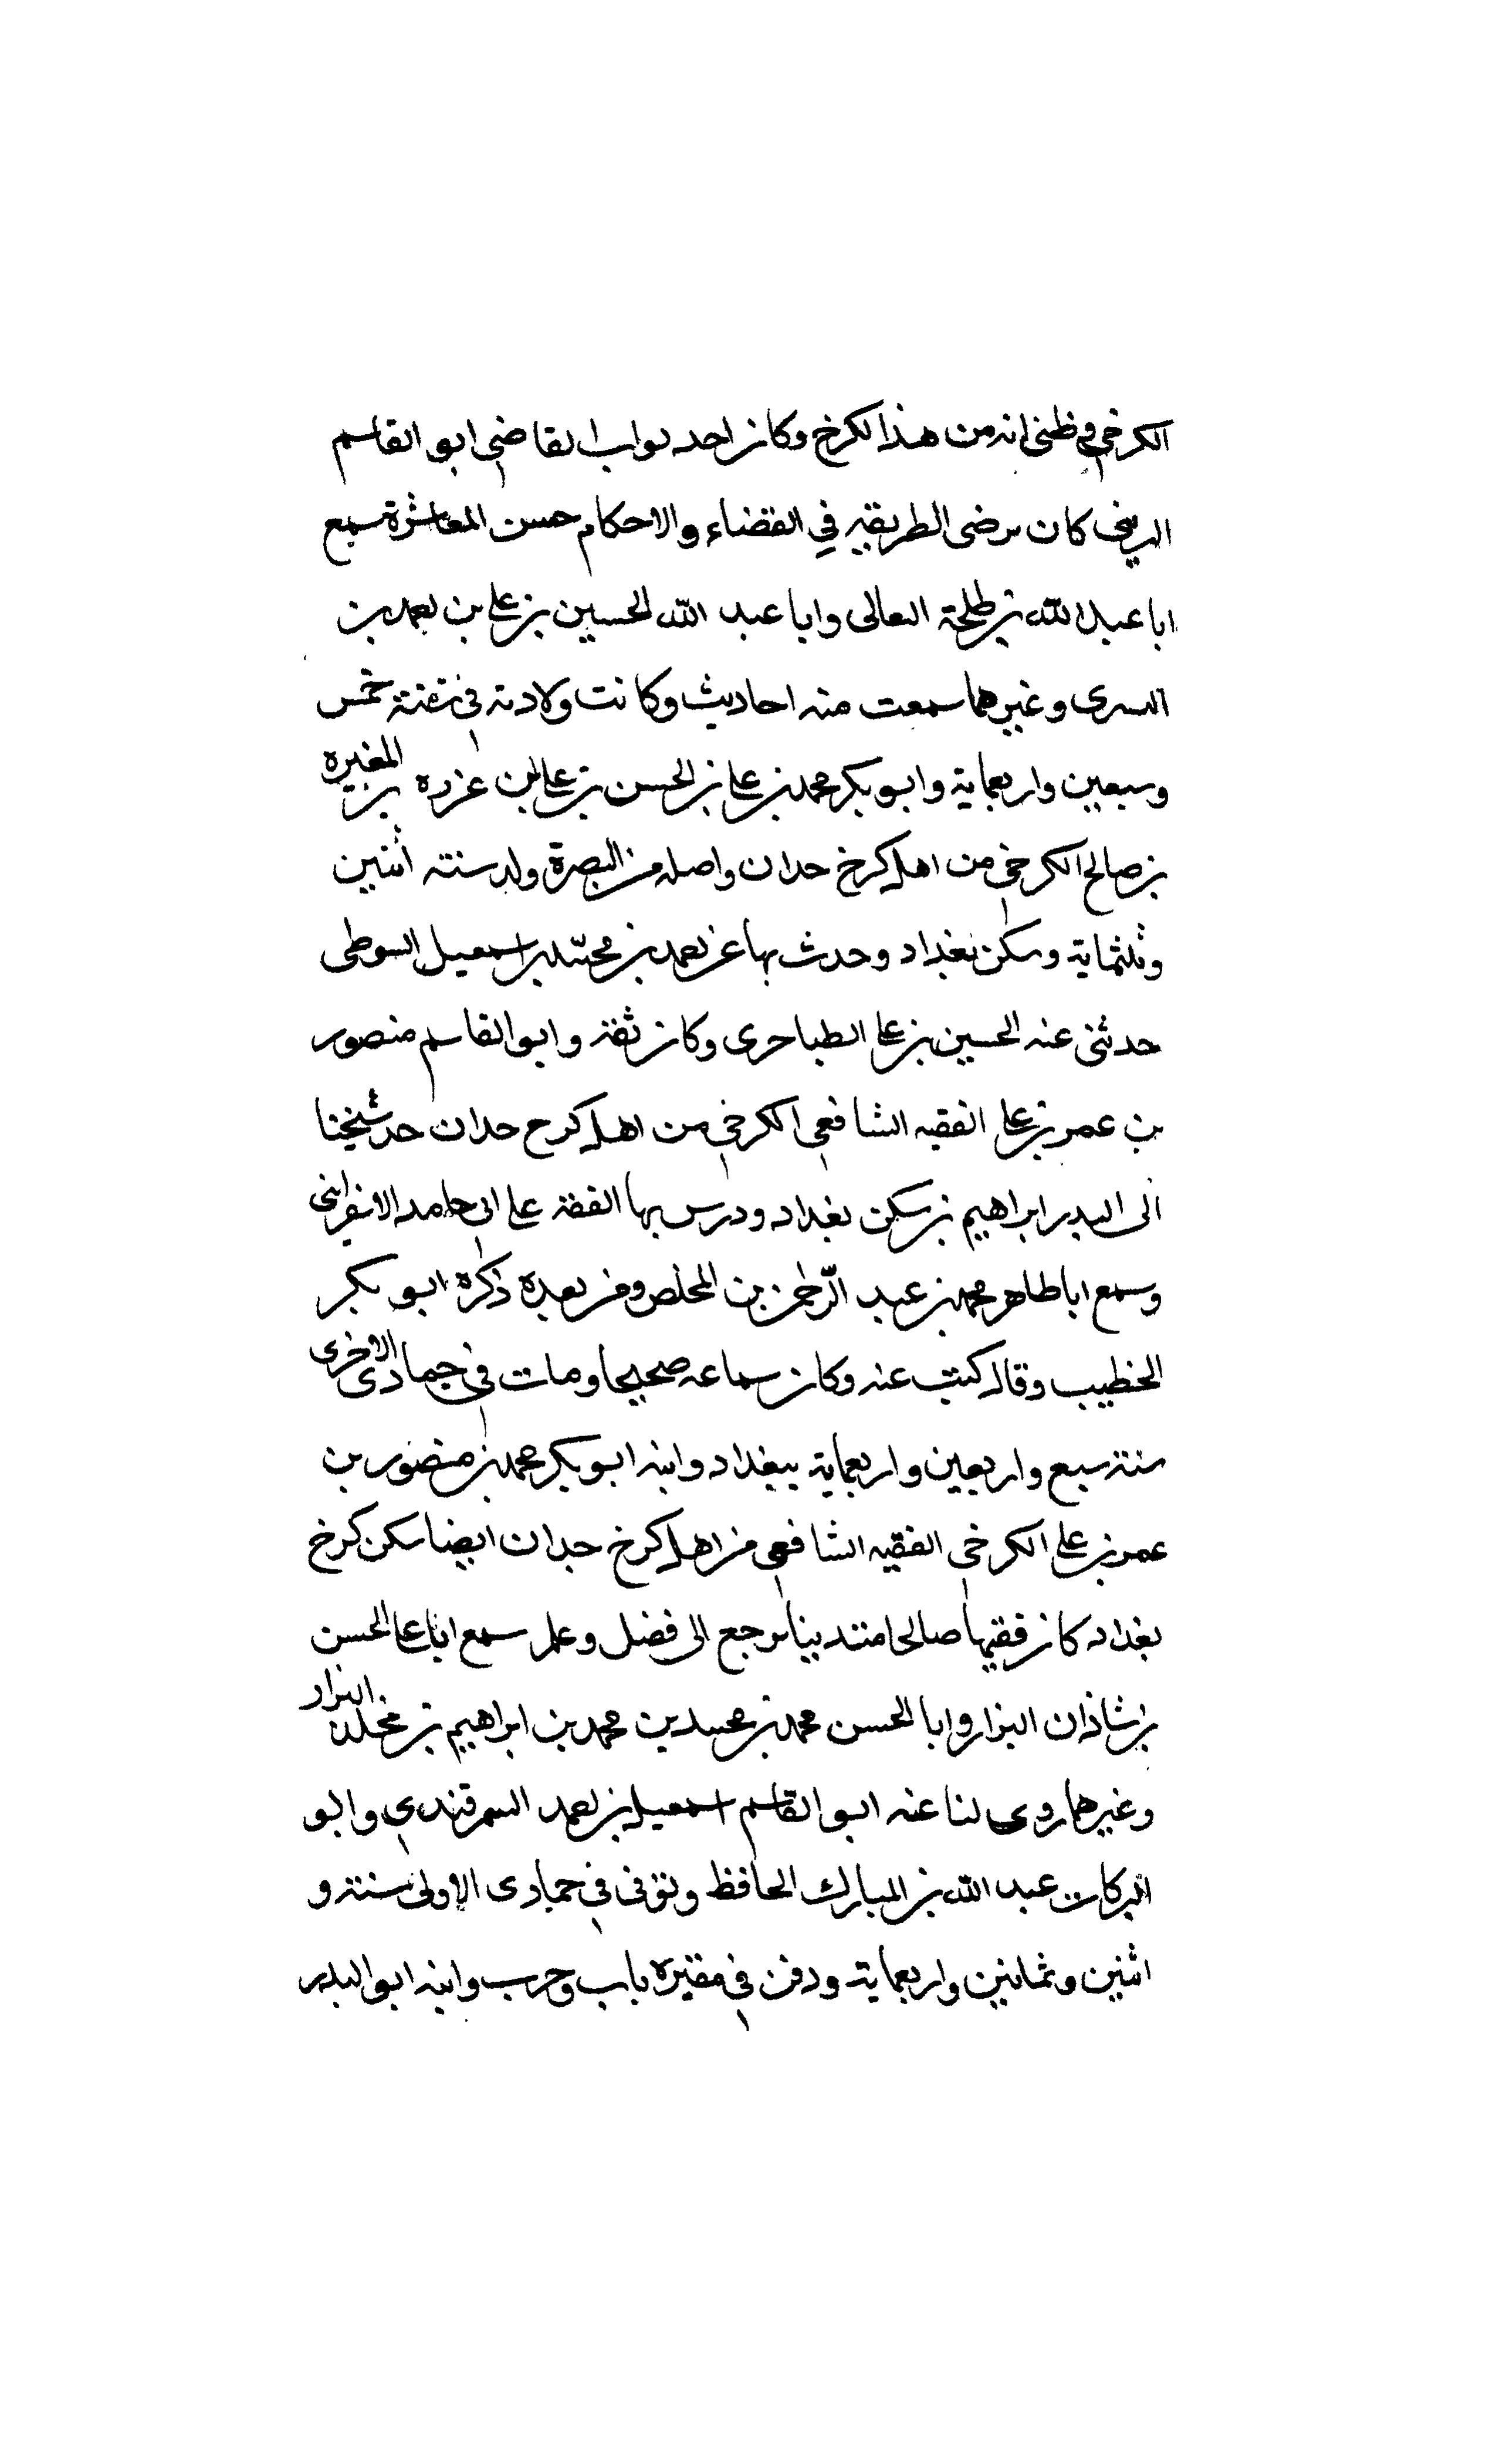 الكرخي في ظني انه من هذا الكرخ وكان احد نواب القاضي ابو القاسم
كان مرضى الطريقه في القضاء والاحكام حسن المعاشرة سمع
ابا عبد الله بن طلحة النعالى وابا عبد الله الحسين بن علي بن احمد بن
السرى وغيرهما سمعت منه احاديث وكانت ولادته في خمس
وسبعين واربعماية وابو بكر محمد بن علي بن الحسن بن علي بن عزره بن المغيره
بن صالح الكرخي من اهل كرخ حدان واصله من البصرة ولد سنته اثنين
وثلثماية وسكن بغداد وحدث بها عن احمد بن محمد بن اسمعيل السوطى
حدثنى عنه الحسين بن علي الطناحرى وكان ثقة وابو القاسم منصور
بن عمر بن علي الفقيه الشافعي الكرخي من اهل كرخ حدان حد شيخنا
الى البدر ابراهيم بن سكن بغداد ودرس بها الفقه على ابى حامد الاسفراينى
وسمع ابا طاهر محمد بن عبد الرحمن بن المخلص ومن بعده ذكره ابو بكر
الخطيب وقال كتبت عنه وكان سماعه صحيحا ومات في جمادى الاخرى
سنته سبع واربعين واربعماية ببغداد وابنه ابو بكر محمد بن منصور بن
عمر بن علي الكرخي الفقيه الشافعي من اهل كرخ حدان ايضا سكن كرخ
بغداد كان فقيها صالحا متدينا يرجع الى فضل وعلم سمع ابا على الحسن
بن شاذان البزار وابا الحسن محمد بن محمد بن محمد بن ابراهيم بن مخلد البزار
وغيرهما روى لنا عنه ابو القاسم اسمعيل بن احمد السمرقندي وابو
البركات عبد الله بن المبارك الحافظ وتوفى في جمادى الاولى سنته و
اثنين وثمانين واربعماية ودفن في مقبره باب وحرب وابنه ابو البدر